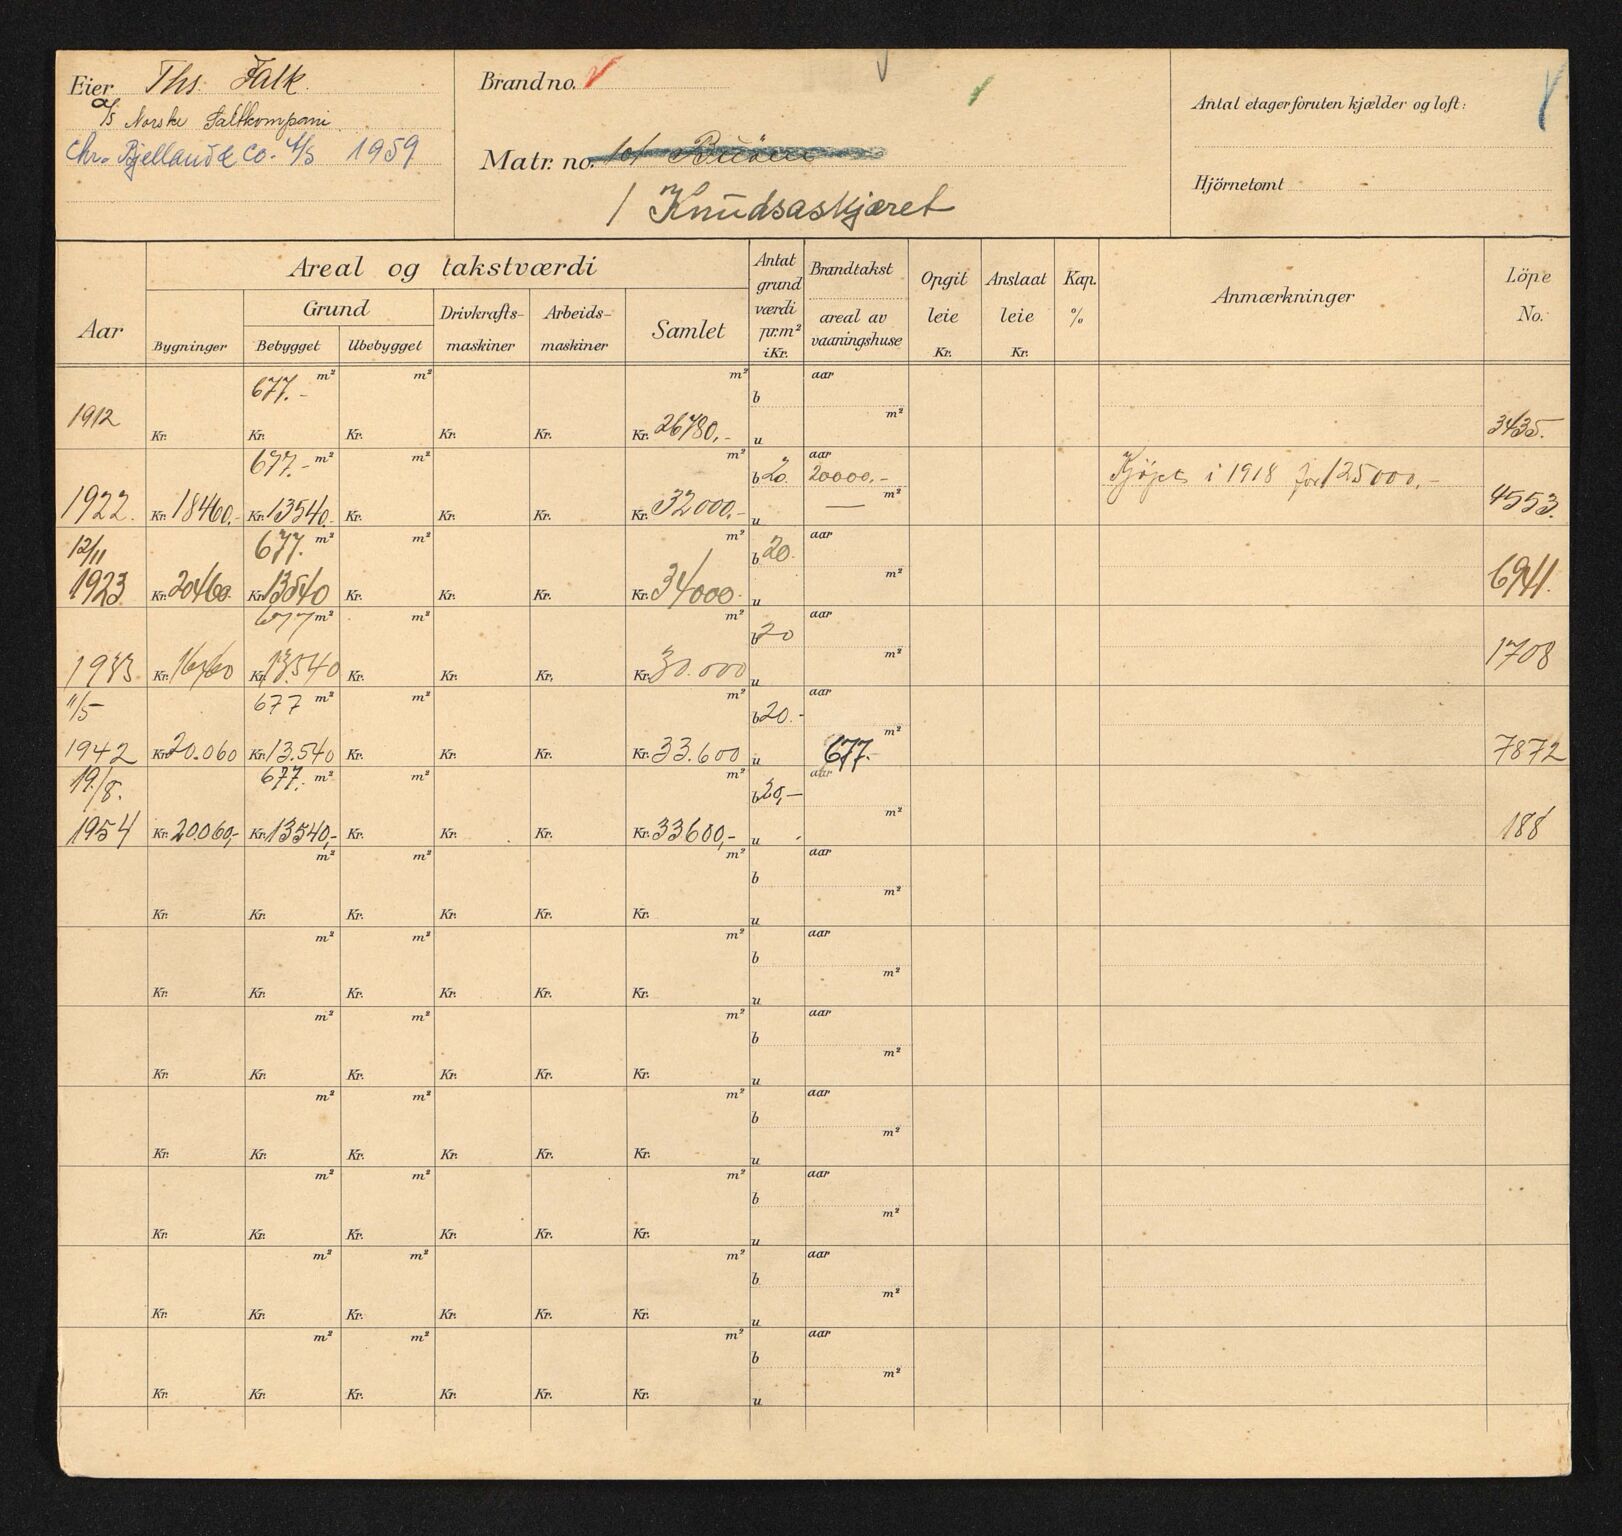 Eier Ths. Falk
A/S Norske Saltkompani
Chr. Bjelland & Co. A/S 1959
Brandno.
Matr. no. 101
1 Knudsaskjæret
Antal etager foruten kjælder og loft:
Hjörnetomt
Aar
Areal og takstværdi
Grund
Bygninger
Bebygget
Ubebygget
Drivkrafts-
maskiner
Arbeids-
maskiner
Samlet
Antat
grund
værdi
pr.m²
i Kr.
Brandtakst
areal av
vaaningshuse
Opgit
leie
Kr.
Anslaat
leie
Kr.
Kap.
%
Anmærkninger
Löpe
No.
677.- m² m² m² aar
b
m²
1912 Kr. Kr. Kr. Kr. Kr. Kr. 26780,- u 3435.
677.- m² m² m² b 20. aar 20000,- Kjøpt i 1918 for 125000,-
m²
1922. Kr. 18460.- Kr. 13540.- Kr. Kr. Kr. Kr. 32000,- u — 4553.
12/11 677. m² m² m² b 20. aar
m²
1923 Kr. 20460. Kr. 13540 Kr. Kr. Kr. Kr. 34000. u 6941.
677 m² m² m² b 20 aar
m²
1933 Kr. 16460 Kr. 13.540 Kr. Kr. Kr. Kr. 30.000 u 1708
11/5 677 m² m² m² b 20.- aar
m²
1942 Kr. 20.060 Kr. 13.540 Kr. Kr. Kr. Kr. 33.600 u 677.- 7872
19./8. 677. m² m² m² b 20,- aar
m²
1954 Kr. 20.060,- Kr. 13540,- Kr. Kr. Kr. Kr. 33600,- u 188
m² m² m² aar
b
m²
Kr. Kr. Kr. Kr. Kr. Kr. u
m² m² m² aar
b
m²
Kr. Kr. Kr. Kr. Kr. Kr. u
m² m² m² aar
b
m²
Kr. Kr. Kr. Kr. Kr. Kr. u
m² m² m² aar
b
m²
Kr. Kr. Kr. Kr. Kr. Kr. u
m² m² m² aar
b
m²
Kr. Kr. Kr. Kr. Kr. Kr. u
m² m² m² aar
b
m²
Kr. Kr. Kr. Kr. Kr. Kr. u
m² m² m² aar
b
m²
Kr. Kr. Kr. Kr. Kr. Kr. u